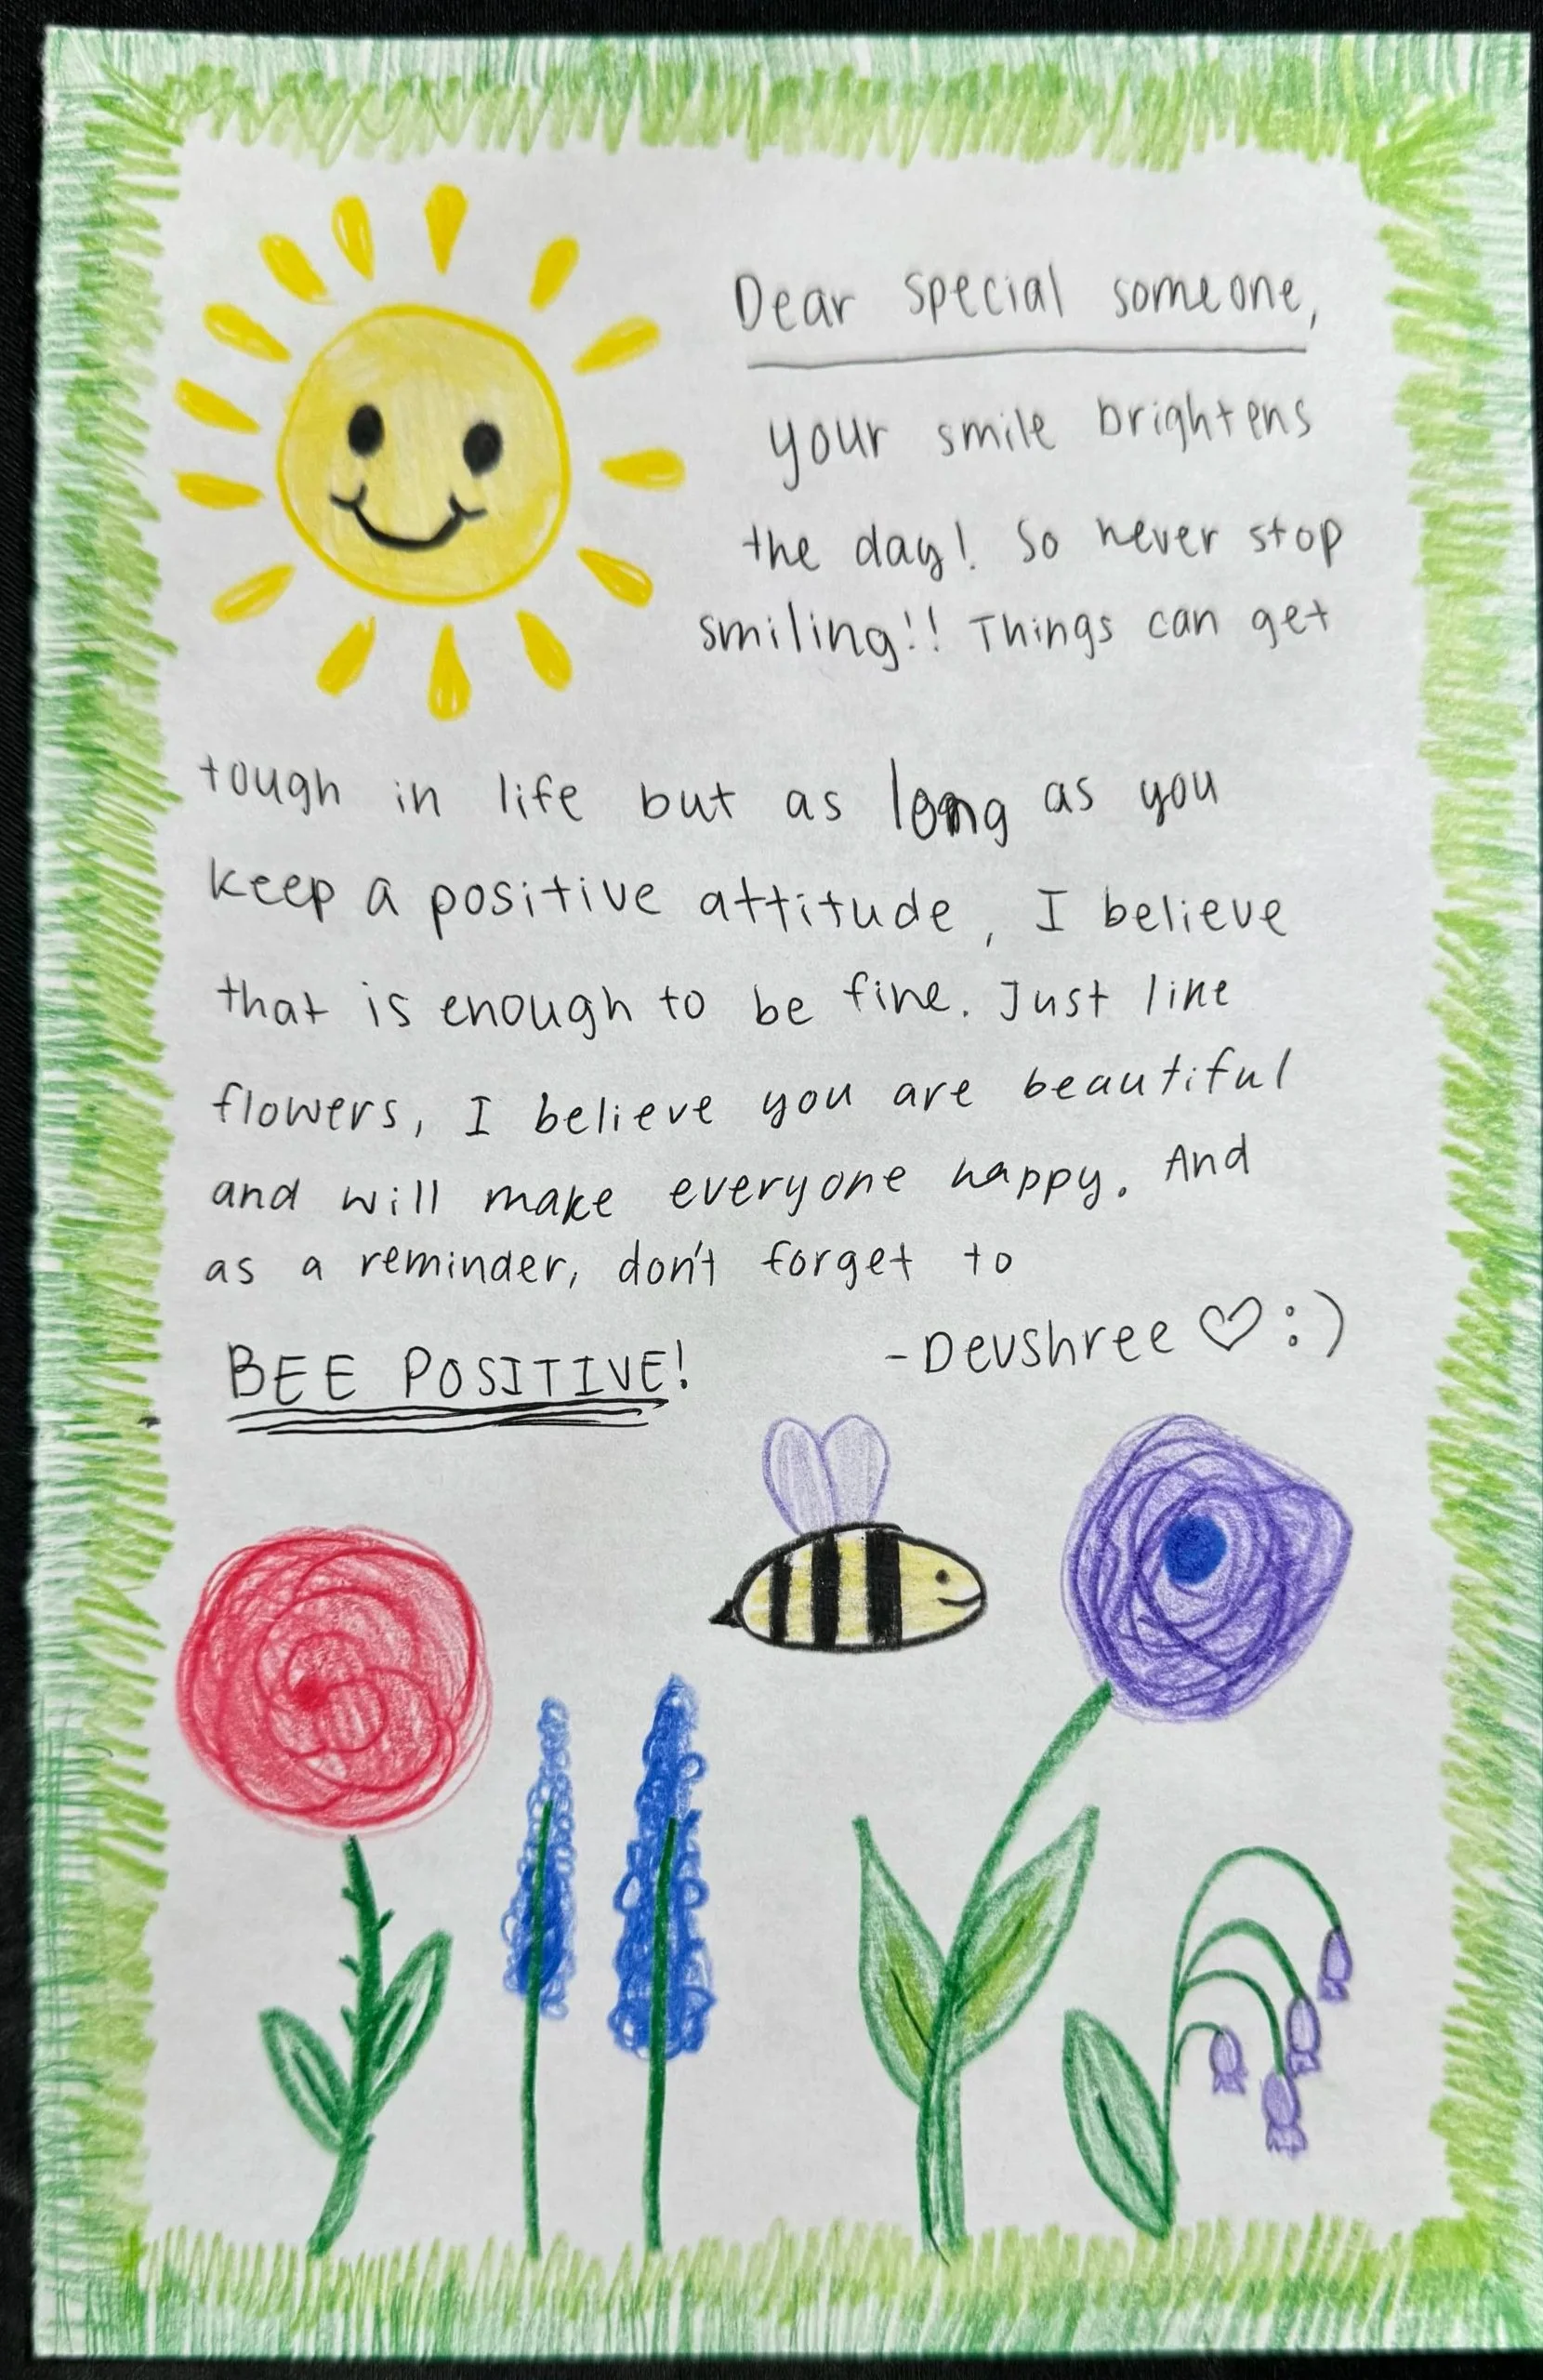 Dear special someone,
your smile brightens
the day! So never stop
smiling!! Things can get
tough in life but as long as you
keep a positive attitude, I believe
that is enough to be fine. Just like
flowers, I believe you are beautiful
and will make everyone happy. And
as a reminder, don't forget to
BEE POSITIVE!
-Devshree ♡ :)